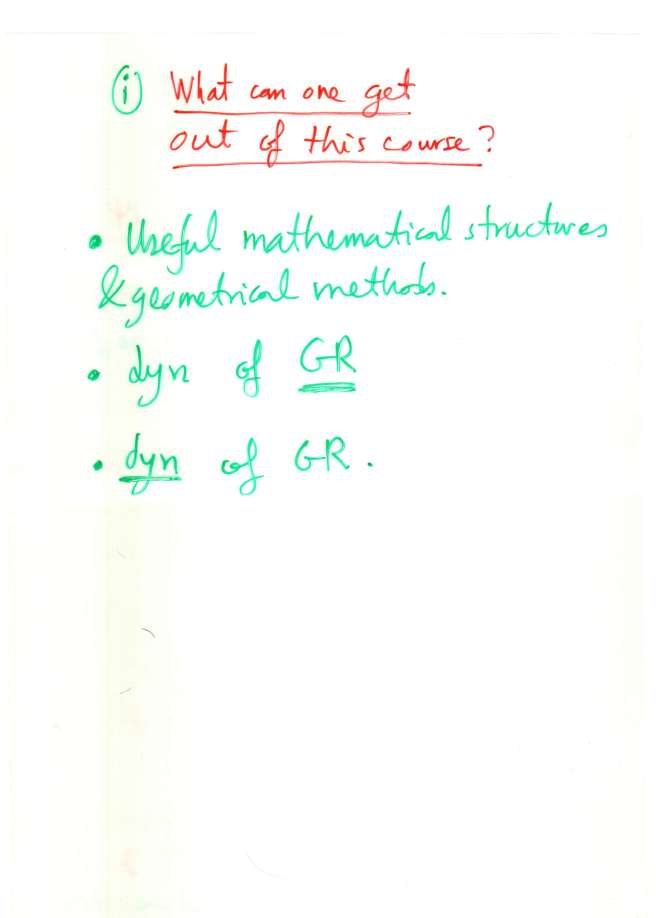 (i) What can one get
out of this course?
• Useful mathematical structures
& geometrical methods.
• dyn of GR
• dyn of GR.